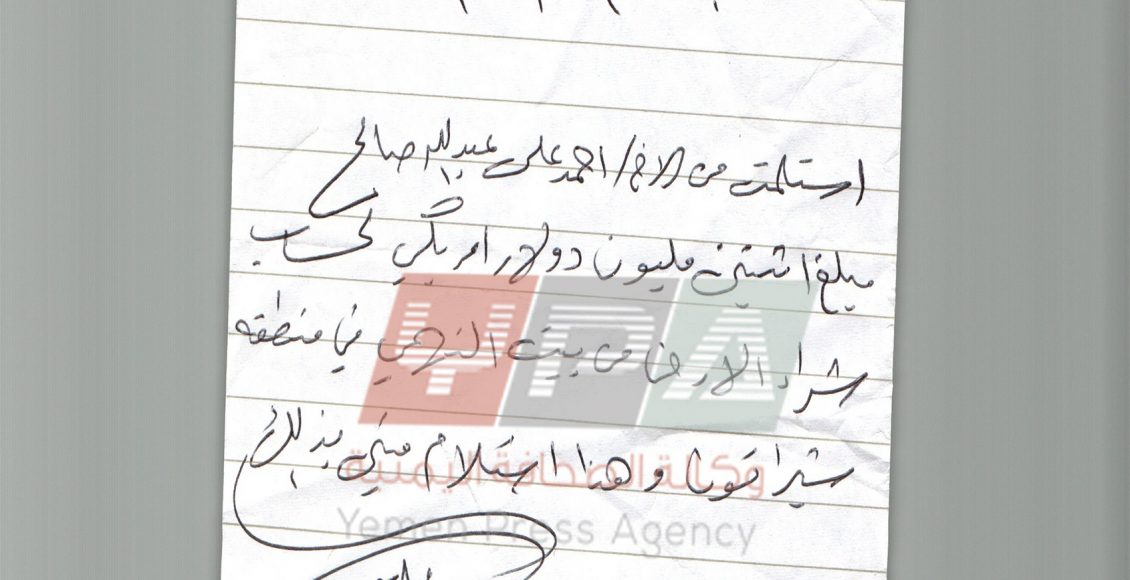 استلمت من الاخ/ احمد علي عبدالله صالح
مبلغ اثنين مليون دولار امريكي لحساب
شراء الارض من بيت النهمي في منطقه
شيراتون وهذا استلام مني بذلك
YPA
وكالة الصحافة اليمنية
Yemen Press Agency